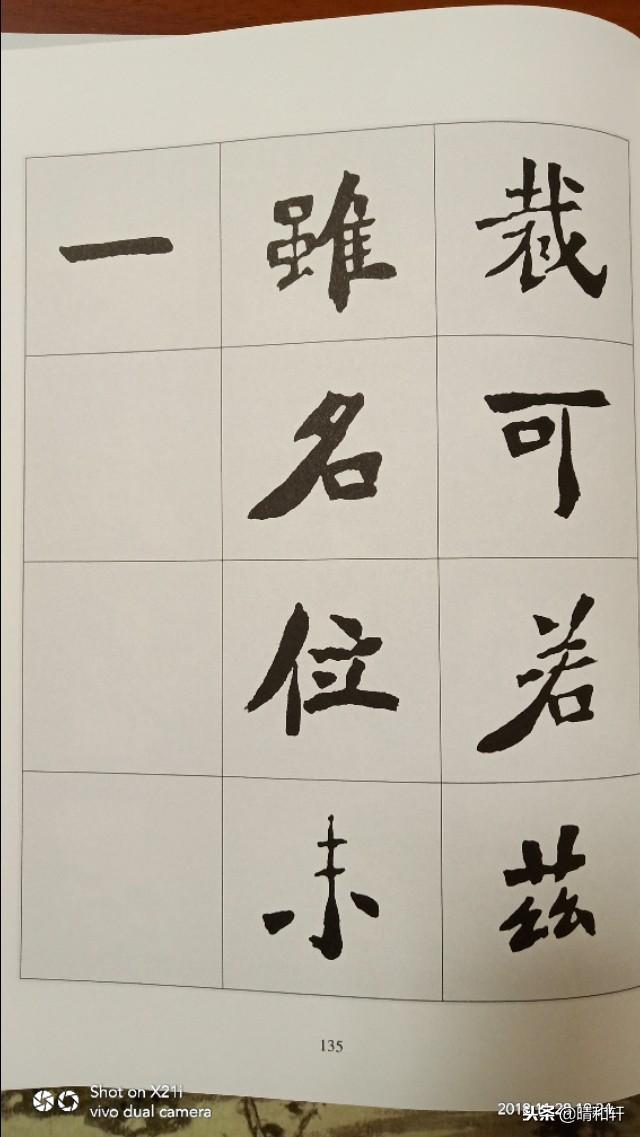 裁可若茲
雖名位未
一
135
Shot on X21i
vivo dual camera
头条@晴和轩